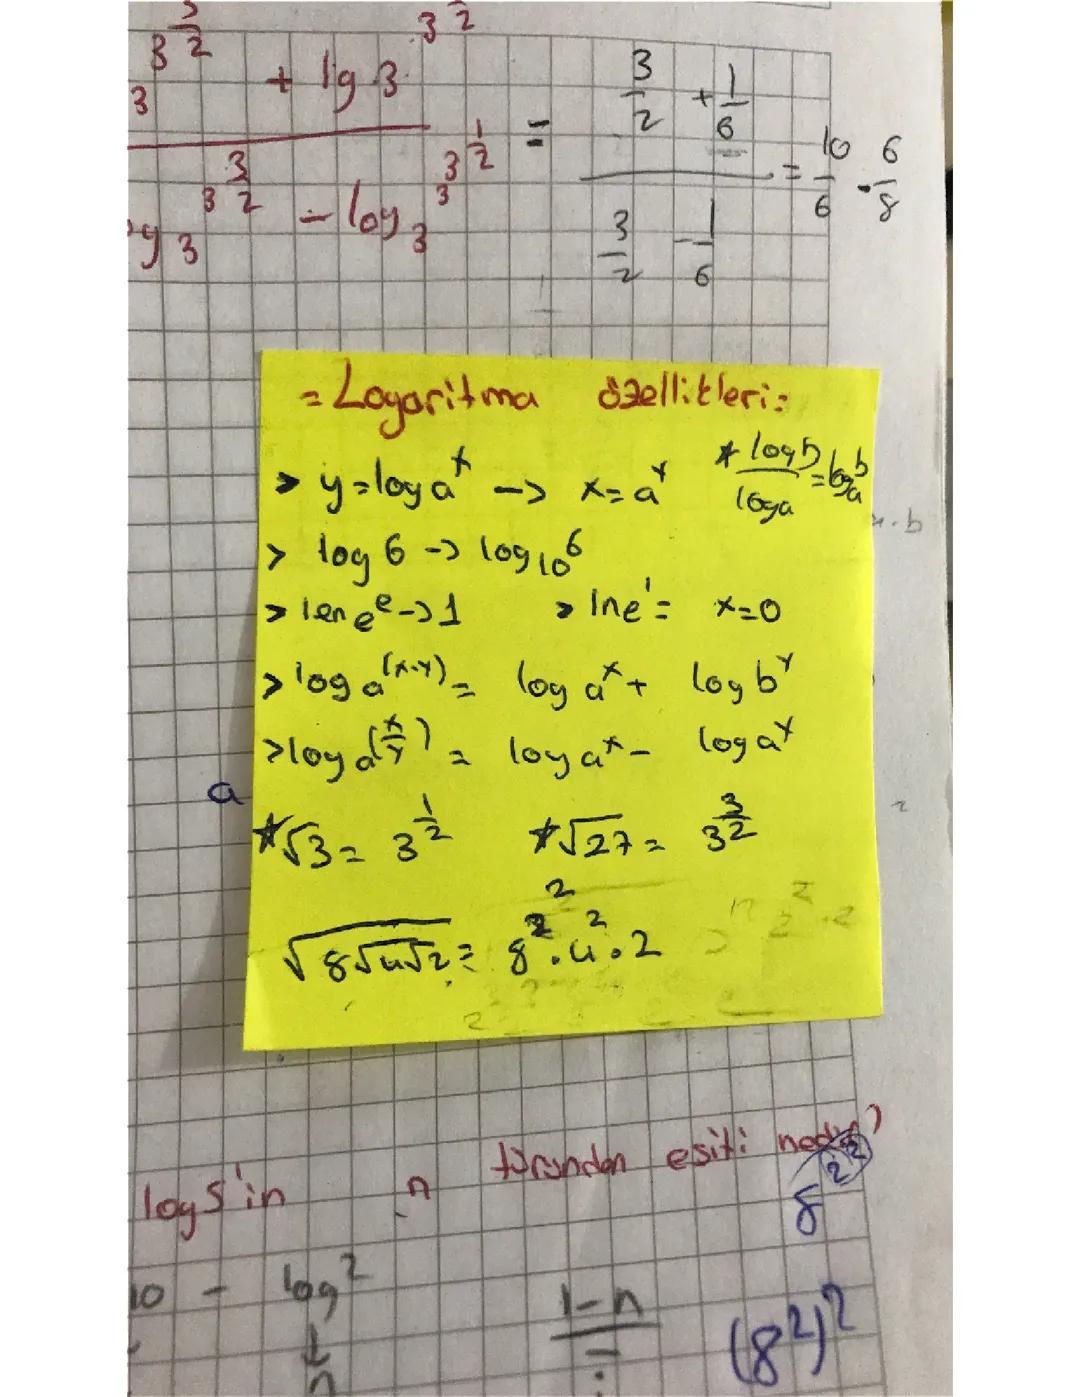 3 3^(3/2) + lg 3 3^(1/2) = 3/2 + 1/6 = 10/6 · 6/8
og 3 3^(3/2) - log 3 3^(1/2) 3/2 - 1/6
= Logaritma özellikleri:
> y = log a^x -> x = a^y * log b / log a = log a^b
> log 6 -> log 10^6
> len e^e -> 1 > ln e^1 = x=0
> log a^(x.y) = log a^x + log b^y
> log a^(x/y) = log a^x - log a^y
a
* √3 = 3^(1/2) * √27 = 3^(3/2)
√(8√4√2) = 8^2^2 . 4^2 . 2
log5'in n türünden eşiti nedir?
8^2^2
10 - log 2 1-n
n
(8^2)^2